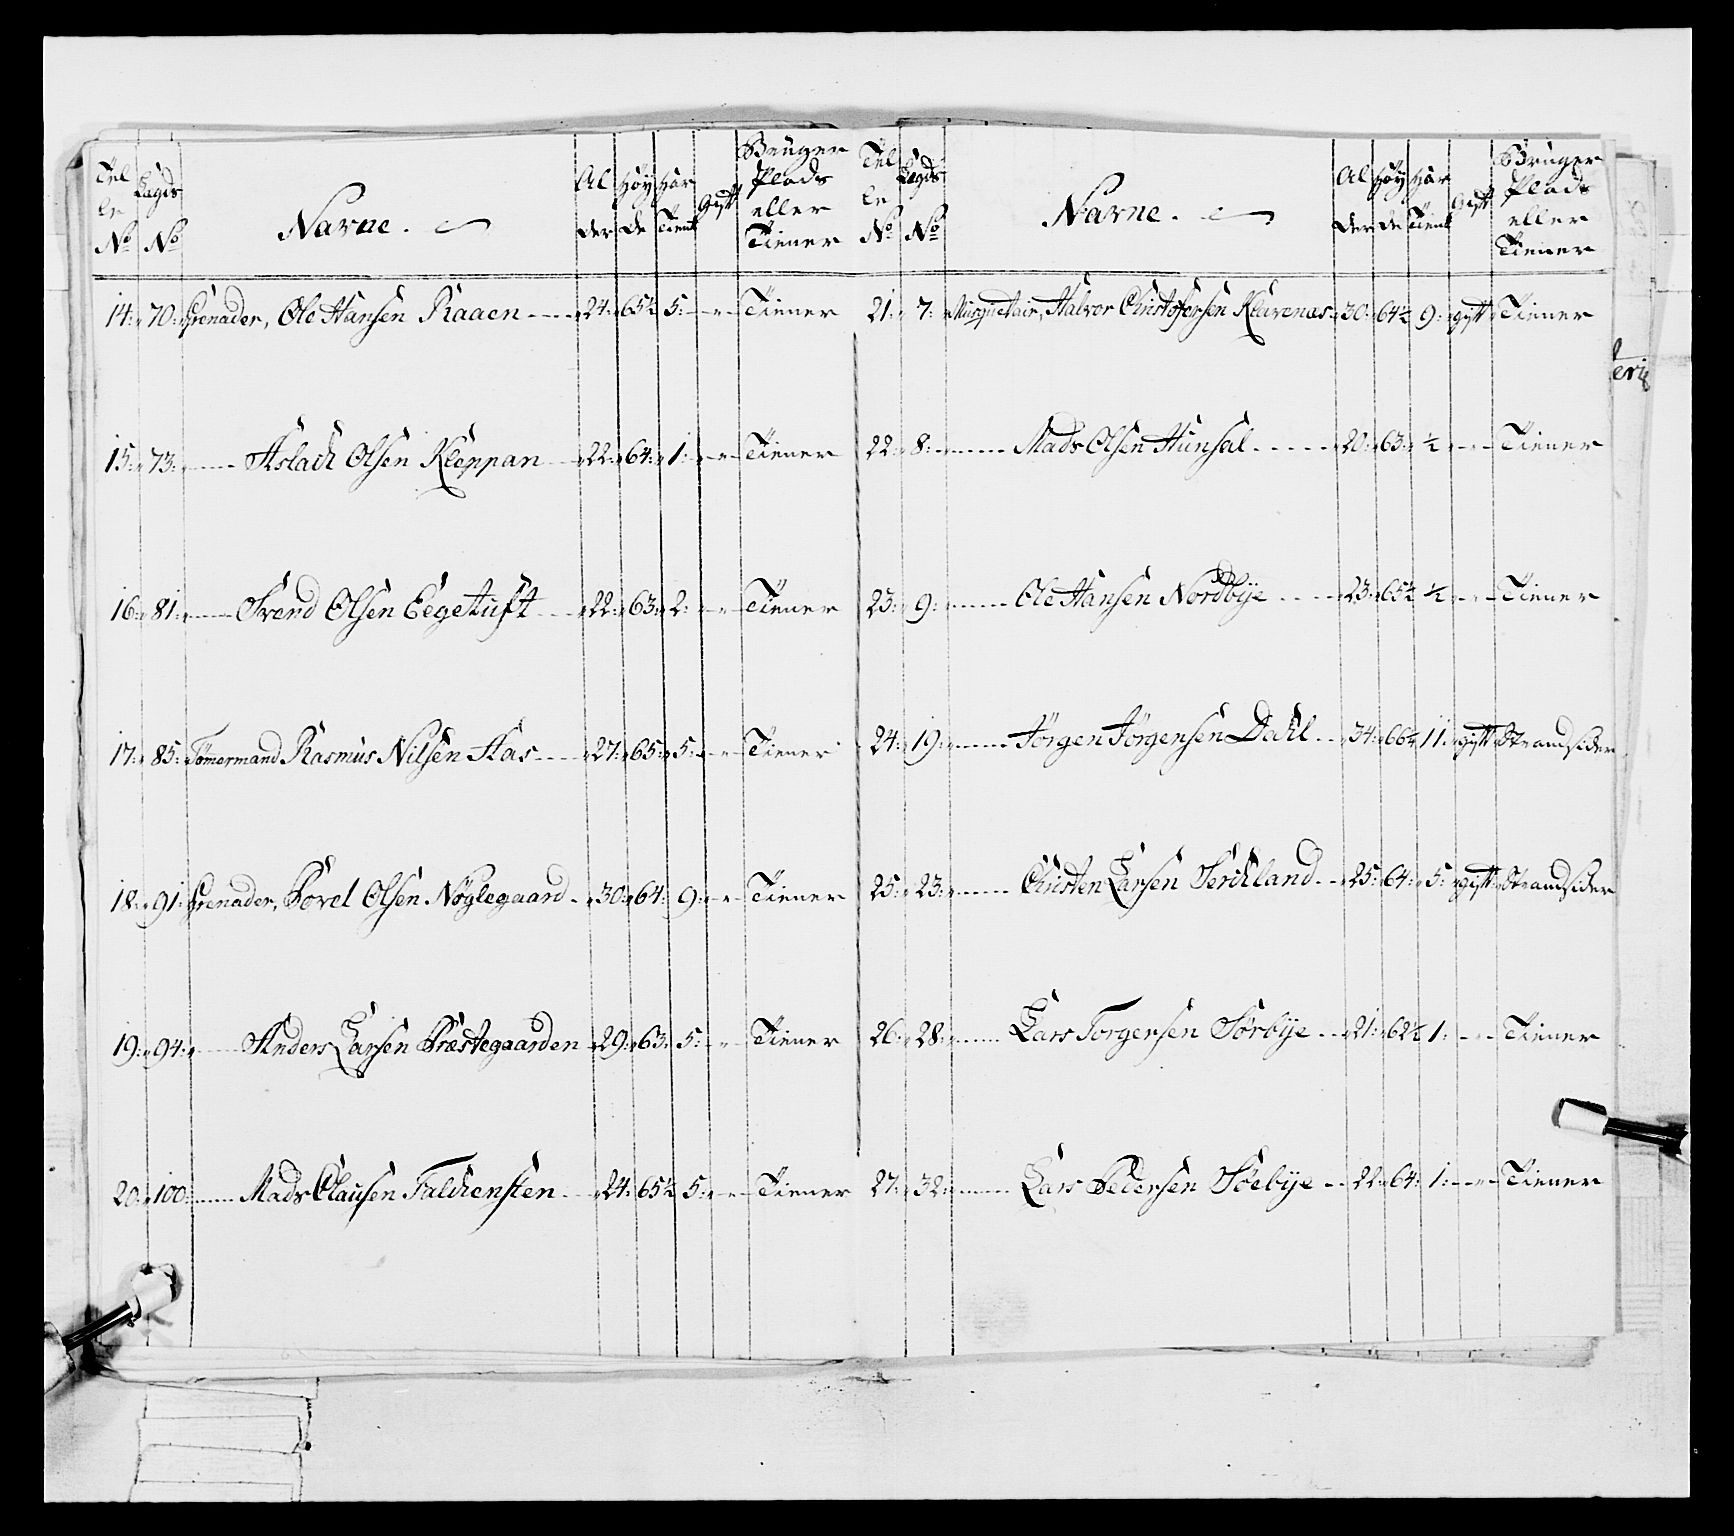 Tel Lagds Al Høy Har Gift Bruger
le der de Tient Plads
No No Navne. eller
Tiener
14: 70: Grenader, Ole Hansen Raaen 24: 65½ 5: Tiener
15: 73: Aslach Olsen Kleppan 22: 64: 1: Tiener
16: 81: Svend Olsen Eegetuft 22: 63: 2: Tiener
17: 85: Tømermand Rasmus Nilsen Aas 27: 65: 5: Tiener
18: 91: Grenader, Povel Olsen Nøglegaard 30: 64: 9: Tiener
19: 94: Anders Larsen Præstegaarden 29: 63: 5: Tiener
20: 100: Mads Clausen Falchensten 24: 65½ 5: Tiener
Tel Lægds Al Høy Har Gift Bruger
le der de Tient Plads
No No Navne. eller
Tiener
21: 7: Musquetair, Halvor Christofersen Klavenæs 30: 64½ 9: gift Tiener
22: 8: Mads Olsen Hunsal 20: 63: ½ Tiener
23: 9: Ole Hansen Nordbye 23: 65½ ½ Tiener
24: 19: Jørgen Jørgensen Dahl 34: 66½ 11: gift Strandsider
25: 23: Christen Larsen Serchland 25: 64: 5: gift Strandsider
26: 28: Lars Torgersen Sørbye 21: 62½ 1: Tiener
27: 32: Lars Pedersen Søebye 22: 64: 1: Tiener